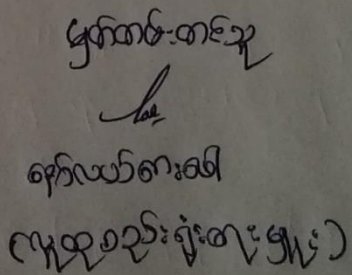 မှတ်တမ်းတင်သူ
နော်လယ်စားဝါ
(လူထုစည်းရုံးရေးမှူး)